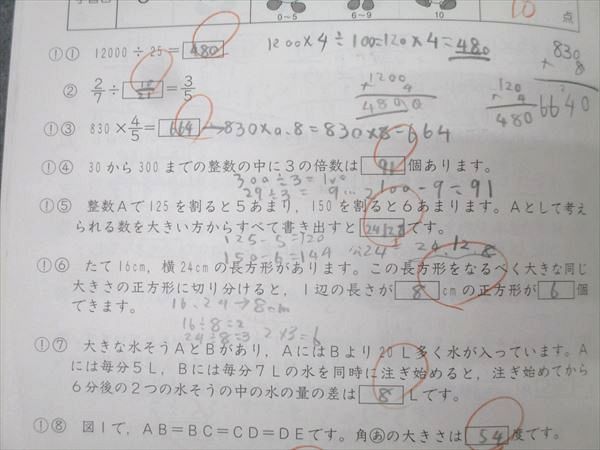 0～5 6～9 10 10 点
①① 12000÷25＝480 1200×4÷100=120×4=480
830
× 8
6640
1200
× 4
4800
120
× 4
480
② 2/7÷10/21＝3/5
①③ 830×4/5＝664 →830×0.8=830×8=664
①④ 30から300までの整数の中に3の倍数は91個あります。
300÷3=100
29÷3= 9…2 100-9=91
①⑤ 整数Aで125を割ると5あまり，150を割ると6あまります。Aとして考え
られる数を大きい方からすべて書き出すとです。
125-5=120
150-6=144 24 24,12 8
①⑥ たて16cm，横24cmの長方形があります。この長方形をなるべく大きな同じ
大きさの正方形に切り分けると，1辺の長さが8cmの正方形が6個
できます。
16.24→8cm
16÷8=2
24÷8=3 2×3=6
①⑦ 大きな水そうAとBがあり，AにはBより20L多く水が入っています。A
には毎分5L，Bには毎分7Lの水を同時に注ぎ始めると，注ぎ始めてから
6分後の2つの水そうの中の水の量の差は8Lです。
①⑧ 図1で，AB＝BC＝CD＝DEです。角あの大きさは54度です。